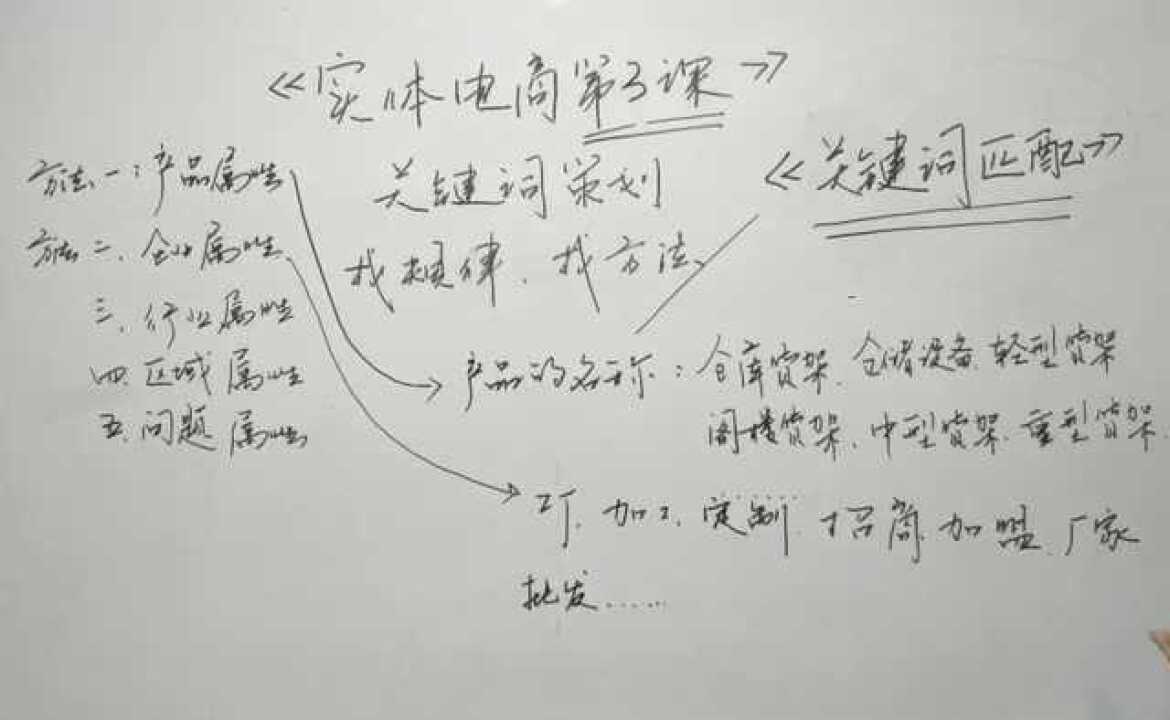 《实体电商第3课》
关键词策划
《关键词匹配》
找规律、找方法
方法一：产品属性
方法二、企业属性
三、行业属性
四、区域属性
五、问题属性
产品的名称：仓库货架、仓储设备、轻型货架
阁楼货架、中型货架、重型货架
工厂、加工、定制、招商、加盟、厂家
批发……